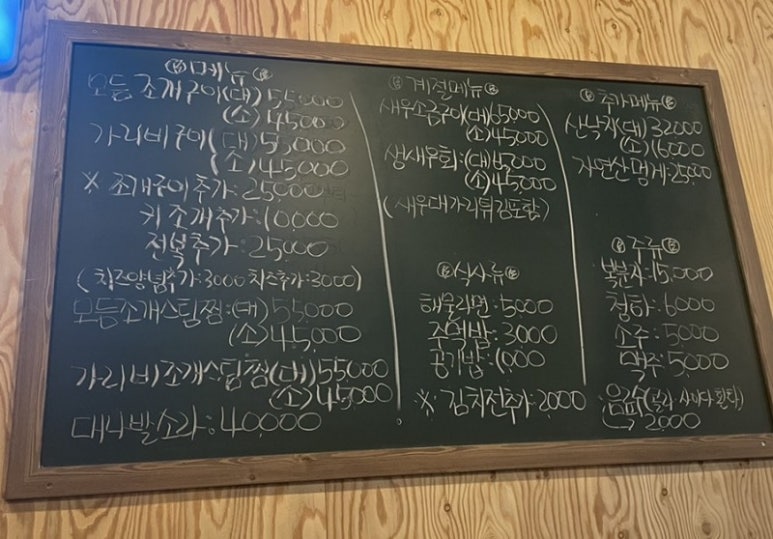 메뉴
모듬 조개구이(대) 55000
(소) 45000
가리비구이(대) 55000
(소) 45000
※ 조개구이 추가: 25000
키조개추가: 10,000
전복추가: 25000
(치즈양념추가: 3000 치즈추가: 3000)
모듬조개스팀찜: (대) 55000
(소) 45,000
가리비조개스팀찜(대) 55000
(소) 45000
대나발소라: 40,000
계절메뉴
새우소금구이(대) 65000
(소) 45000
생새우회: (대) 65000
(소) 45000
(새우대가리튀김포함)
식사류
해물라면: 5000
주먹밥: 3000
공기밥: 1,000
※ 김치전추가: 2000
추가메뉴
산낙지(대) 32000
(소) 16000
자연산멍게: 25000
주류
복분자: 15,000
청하: 6000
소주: 5000
맥주: 5000
음료수(콜라·사이다·환타)
→ 2000